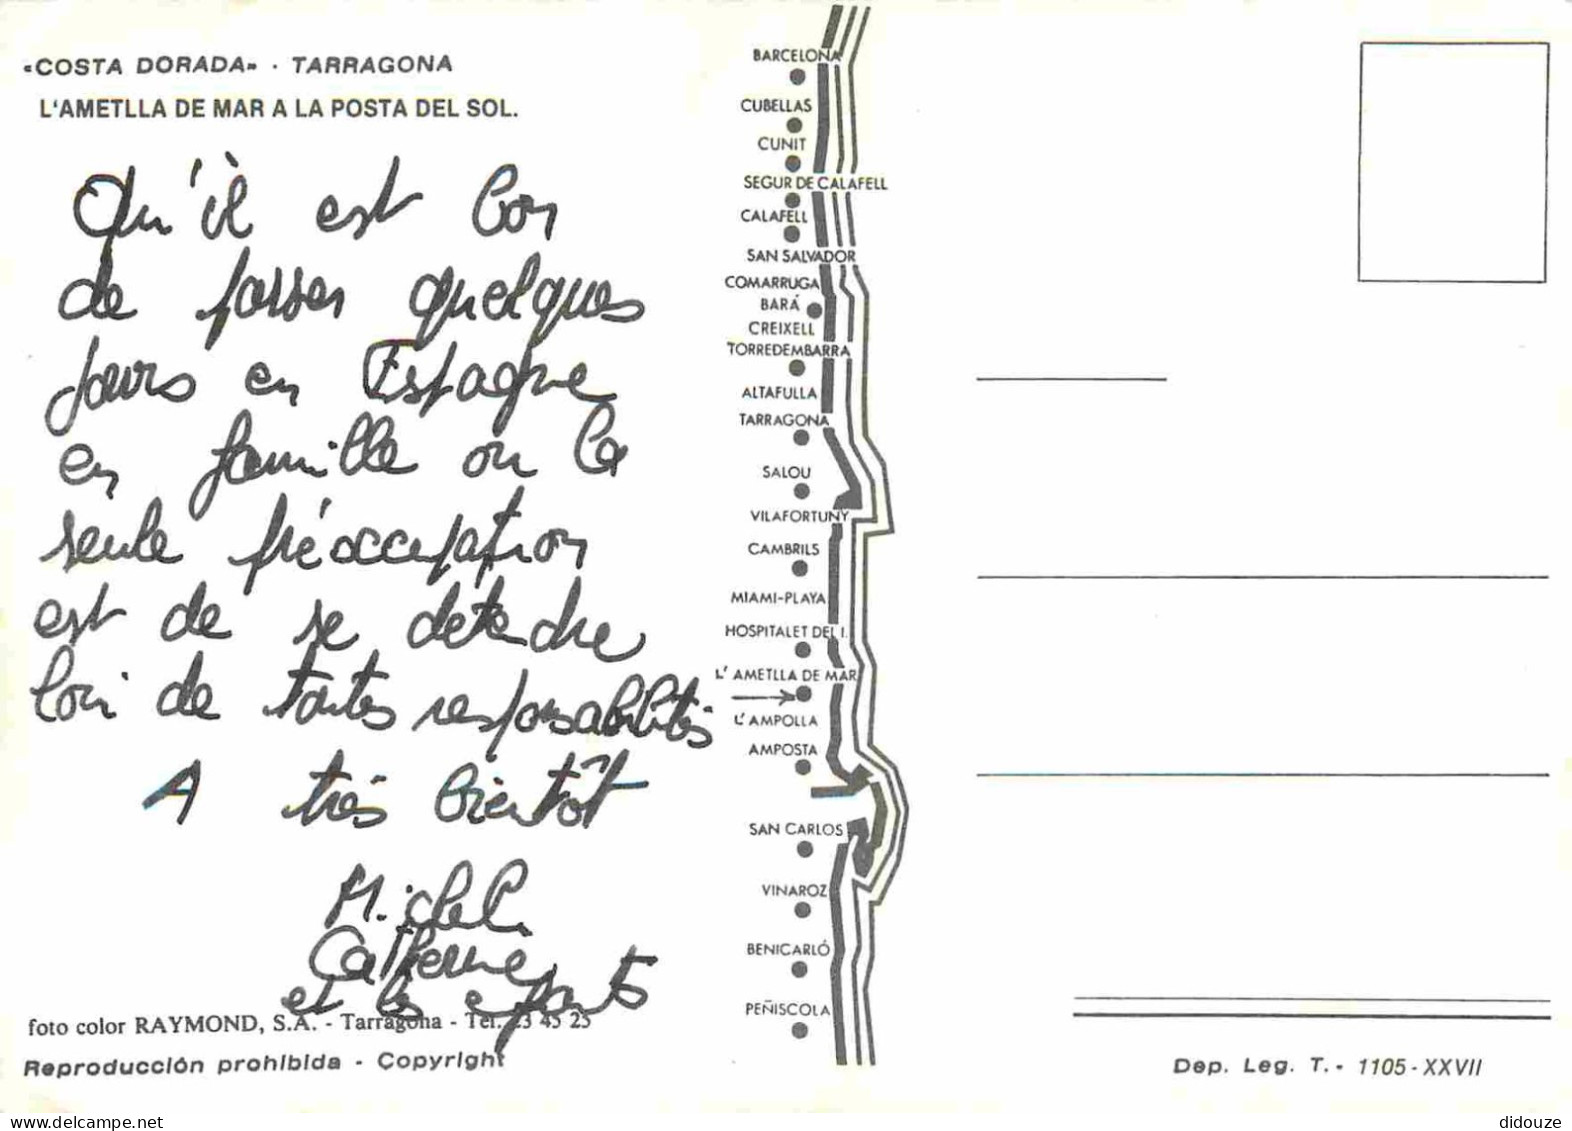 «COSTA DORADA» · TARRAGONA
L'AMETLLA DE MAR A LA POSTA DEL SOL.
Qu'il est bon
de passer quelques
jours en Espagne
en famille ou la
seule préoccupation
est de se détendre
loin de toutes responsabilités
A très bientôt
Michel
Catherine
et les enfants
foto color RAYMOND, S.A. - Tarragona - Tel. 23 45 25
Reproducción prohibida - Copyright
BARCELONA
CUBELLAS
CUNIT
SEGUR DE CALAFELL
CALAFELL
SAN SALVADOR
COMARRUGA
BARÁ
CREIXELL
TORREDEMBARRA
ALTAFULLA
TARRAGONA
SALOU
VILAFORTUNY
CAMBRILS
MIAMI-PLAYA
HOSPITALET DEL I.
L' AMETLLA DE MAR
L' AMPOLLA
AMPOSTA
SAN CARLOS
VINAROZ
BENICARLÓ
PEÑISCOLA
Dep. Leg. T. - 1105 - XXVII
didouze